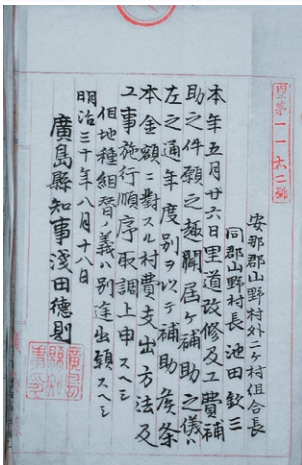 内第一一六二號
安那郡山野村外二ケ村組合長
同郡山野村長 池田欽三
本年五月廿六日里道改修及工費補
助之件願之趣聞届ケ補助之儀ハ
左之通年度別ヲ以テ補助候条
本金額ニ對スル村費支出方法及
工事施行順序取調上申スヘシ
但地種組替ノ義ハ別途出願スヘシ
明治三十年八月十八日
廣島縣知事淺田德則